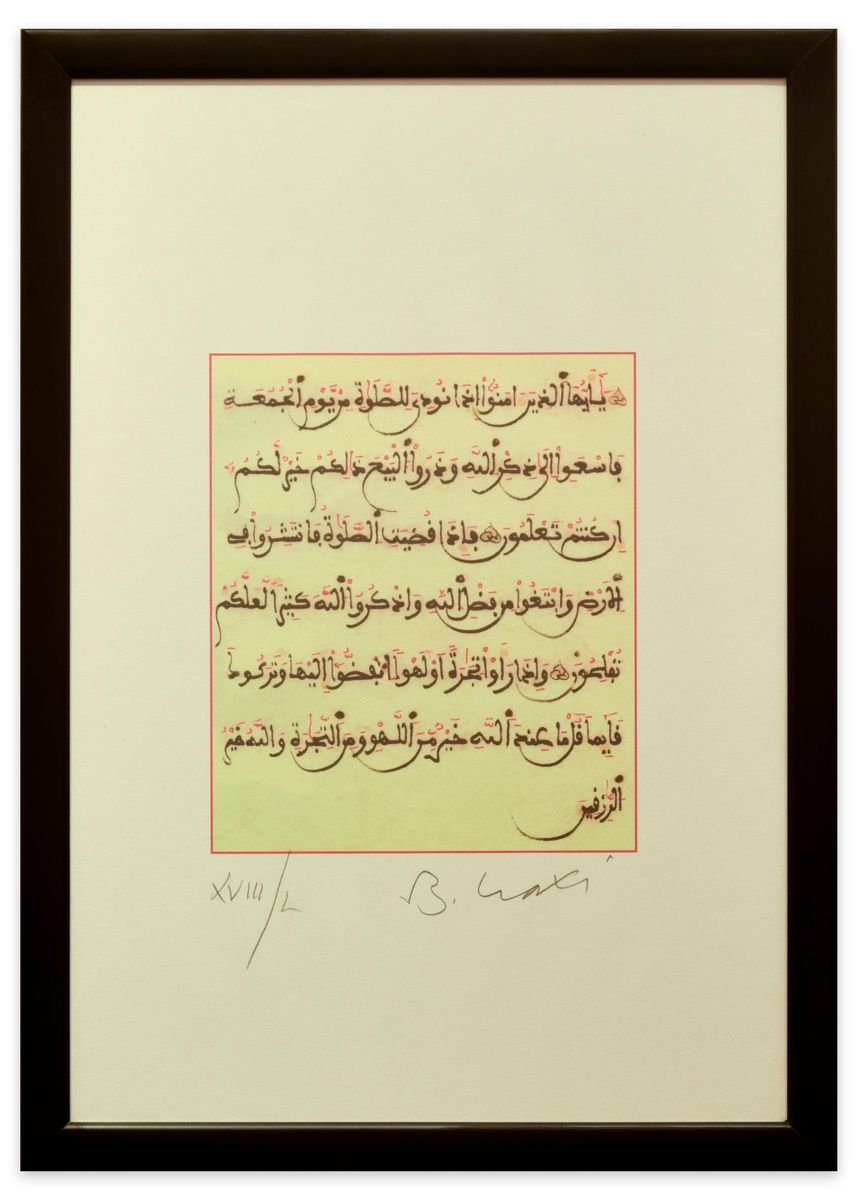 يَـٰأَيُّهَا ٱلذِينَ ءَامَنُوٓاْ إِذَا نُودِىَ لِلصَّلَوٰةِ مِنْ يَّوْمِ ٱلْجُمُعَةِ
فَاسْعَوِاْ اِلَىٰ ذِكْرِ ٱللَّهِ وَذَرُواْ ٱلْبَيْعَ ذَٰلِكُمْ خَيْرٌ لَّكُمُۥٓ
إِن كُنتُمْ تَعْلَمُونَ فَإِذَا قُضِيَتِ ٱلصَّلَوٰةُ فَانتَشِرُواْ فِى
ٱلَارْضِ وَابْتَغُواْ مِن فَضْلِ ٱللَّهِ وَاذْكُرُواْ ٱللَّهَ كَثِيرًا لَّعَلَّكُمْ
تُفْلِحُونَ وَإِذَا رَأَوْاْ تِجَٰرَةً اَوْ لَهْوًا ٱنفَضُّوٓاْ إِلَيْهَا وَتَرَكُوكَ
قَآئِمًا قُلْ مَا عِندَ ٱللَّهِ خَيْرٌ مِّنَ ٱللَّهْوِ وَمِنَ ٱلتِّجَٰرَةِ وَاللَّهُ خَيْرُ
ٱلرَّٰزِقِينَ
XVIII/L